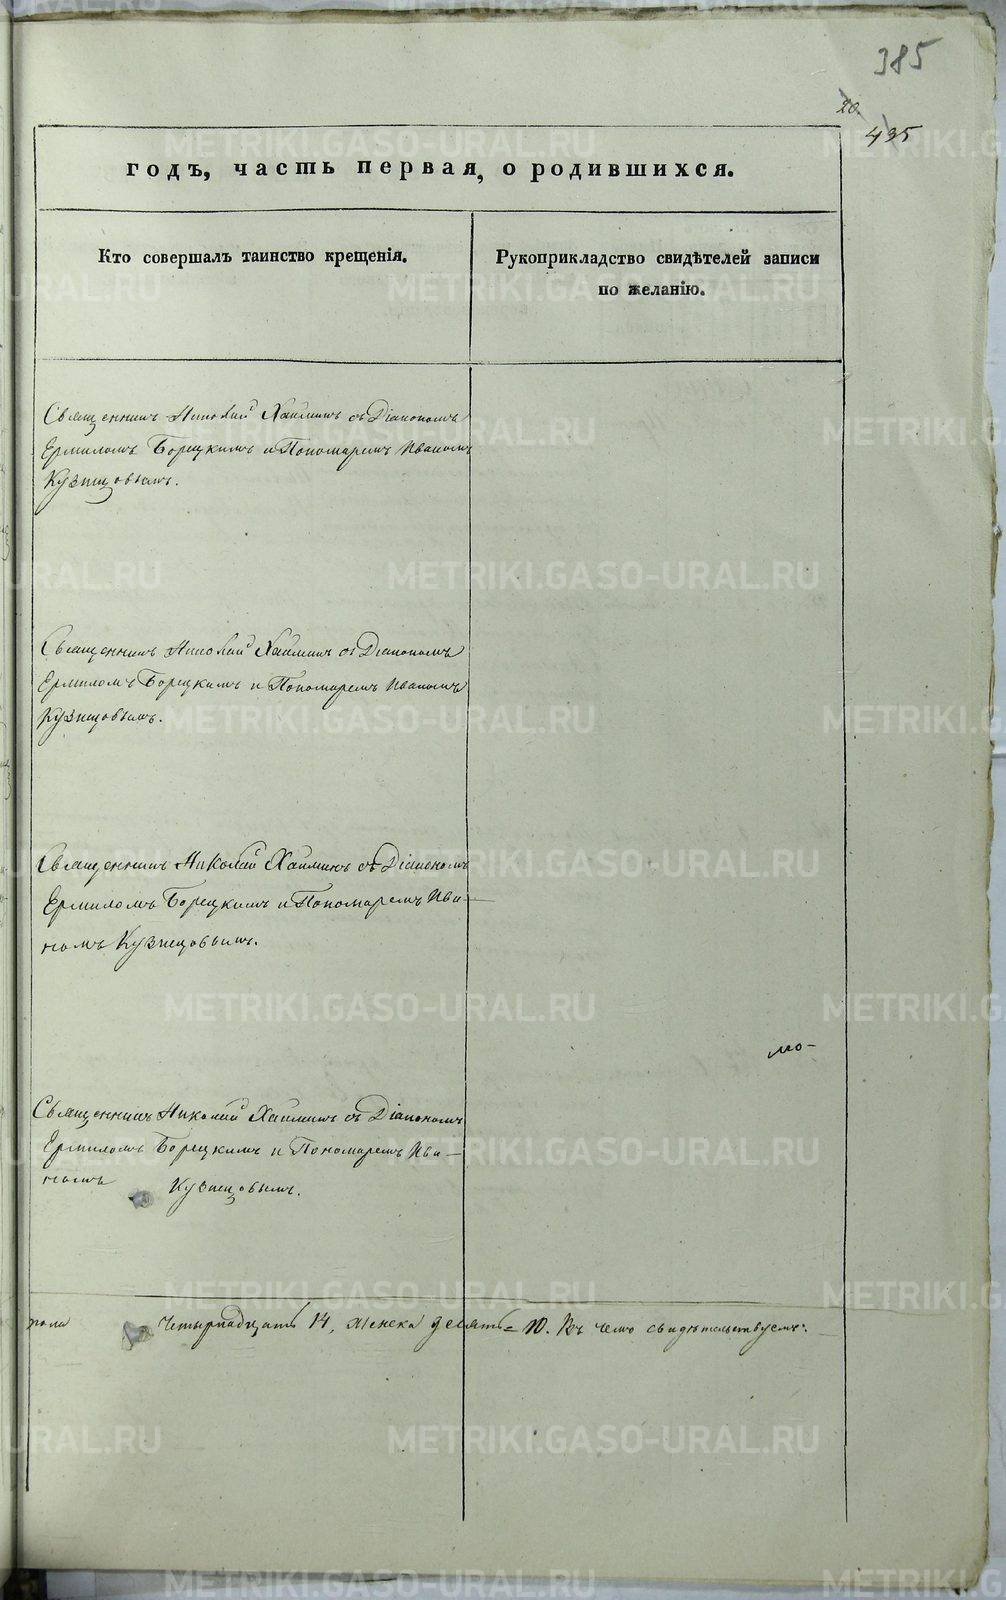 385
20.
435
годъ, часть первая, о родившихся.
Кто совершалъ таинство крещенія.
Рукоприкладство свидѣтелей записи
по желанію.
Священникъ Николай Хаймикъ съ Діакономъ
Ермиломъ Борецкимъ и Пономаремъ Иваномъ
Кузнецовымъ.
Священникъ Николай Хаймикъ съ Діакономъ
Ермиломъ Борецкимъ и Пономаремъ Иваномъ
Кузнецовымъ.
Священникъ Николай Хаймикъ съ Діакономъ
Ермиломъ Борецкимъ и Пономаремъ Ива-
номъ Кузнецовымъ.
Священникъ Николай Хаймикъ съ Діакономъ
Ермиломъ Борецкимъ и Пономаремъ Ива-
номъ Кузнецовымъ.
пола четырнадцать 14, женска десять = 10. Въ чемъ свидѣтельствуемъ:
METRIKI.GASO-URAL.RU